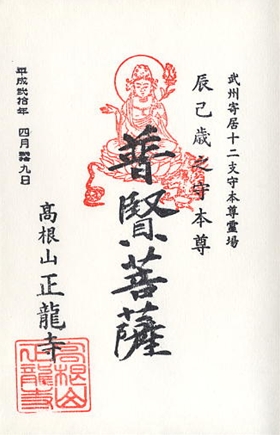 武州寄居十二支守本尊霊場
辰巳歳之守本尊
普賢菩薩
高根山正龍寺
平成弐拾年 四月 九日
高根山
正龍寺